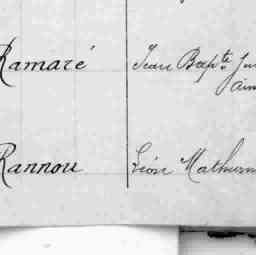 Ramaré Jean Bapte
Rannou Léon Mathurin